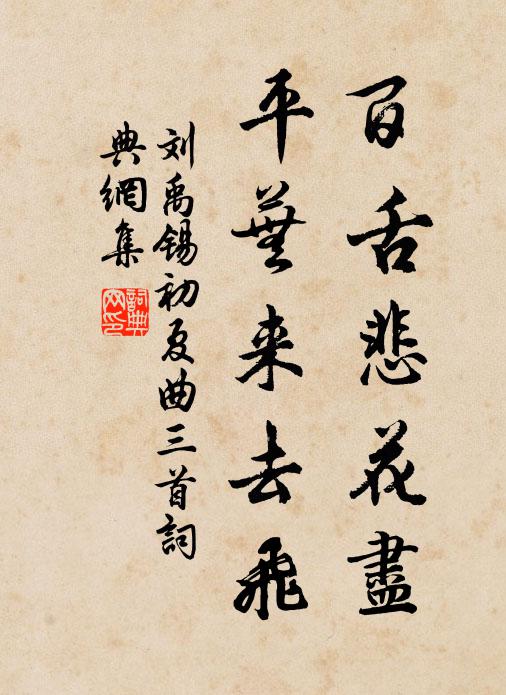 百舌悲花盡
平蕪来去飛
刘禹锡初夏曲三首詞
典網集
詞典網印